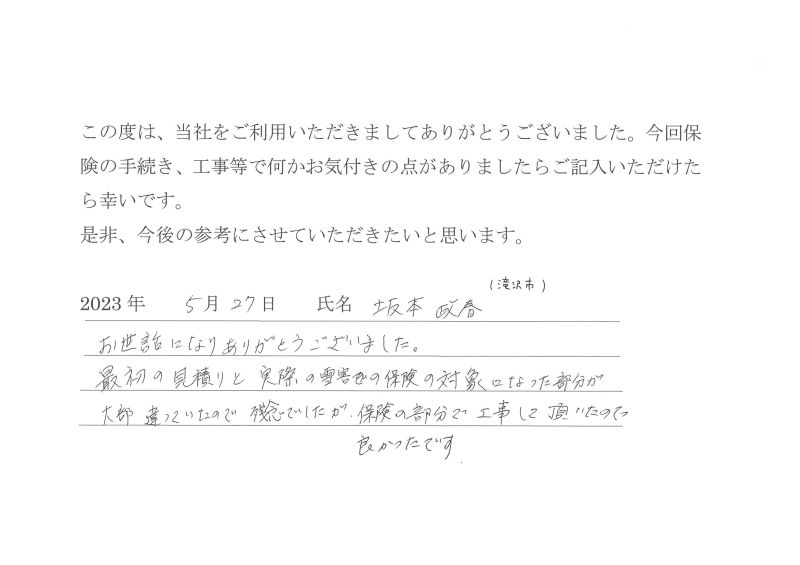 この度は、当社をご利用いただきましてありがとうございました。今回保
険の手続き、工事等で何かお気付きの点がありましたらご記入いただけた
ら幸いです。
是非、今後の参考にさせていただきたいと思います。
(滝沢市)
2023年 5月27日 氏名 坂本 政春
お世話になりありがとうございました。
最初の見積りと実際の雪害での保険の対象になった部分が
大部違っていたので残念でしたが、保険の部分で工事して頂いたので
良かったです